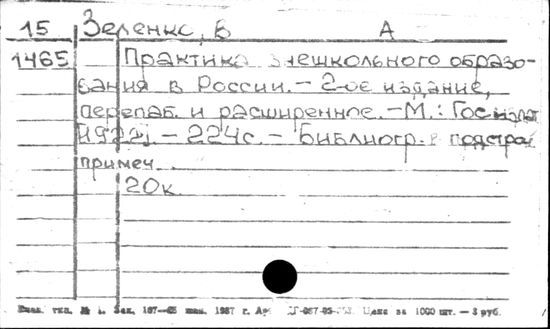 15 Зеленко, В А
1465 Практика внешкольного образо-
вания в России. - 2-ое издание,
перераб. и расширенное. - М.: Госиздат
[1923]. - 224с. - Библиогр. в подстроч
примеч.
20к.
тип. № 1. Зак. 197-65 тыс. 1987 г. Цена за 1000 шт. - 3 руб.